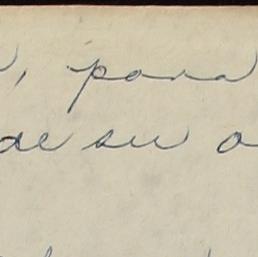 , para
de su a